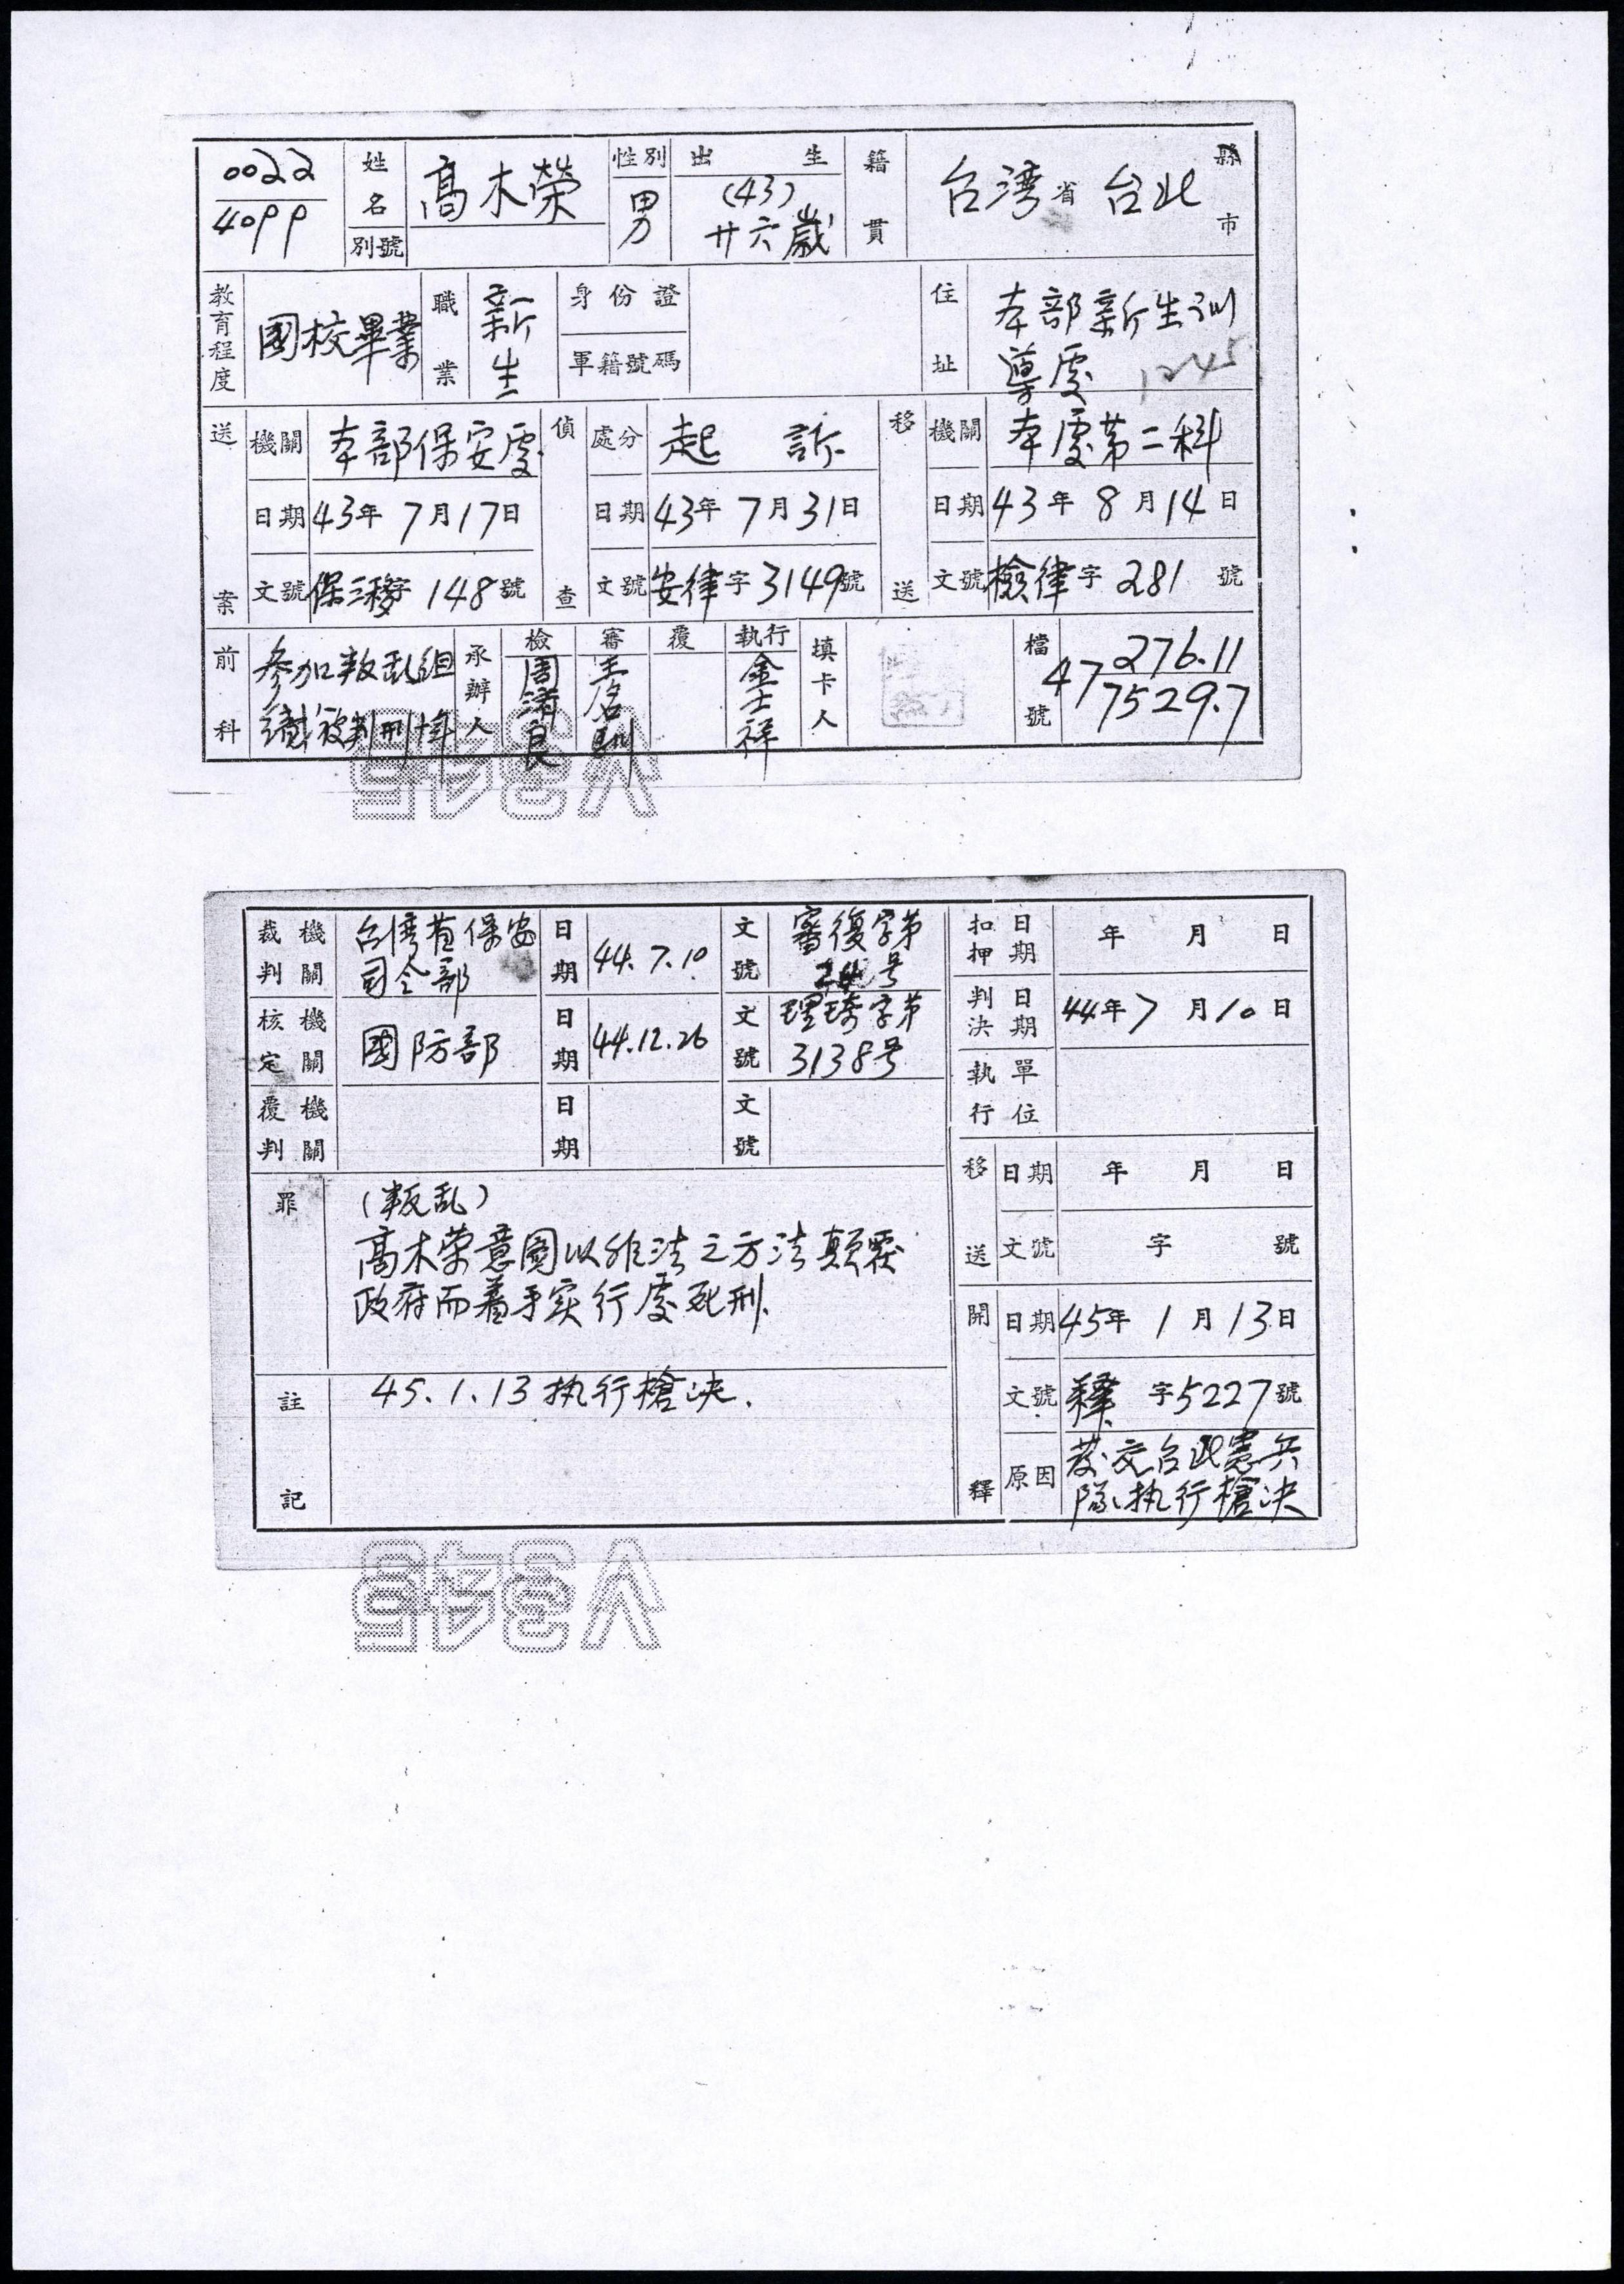 0022
4099
姓名 高木榮
別號
性別 男
出生 (43) 廿六歲
籍貫 台湾省 台北 縣市
教育程度 國校畢業
職業 新生
身份證
軍籍號碼
住址 本部新生训
導處 1245
送案 機關 本部保安處
日期 43年 7月17日
文號 保三移字 148號
偵查 處分 起 訴
日期 43年 7月31日
文號 安律字 3149號
移送 機關 本處第二科
日期 43年 8月14日
文號 檢律字 281 號
前科 參加叛乱組
織被判刑十年
承辦人
檢
審
覆
執行 金士祥
填卡人
檔號 47 276.11
7529.7
V345
裁判機關 台湾省保安
司令部
日期 44.7.10
文號 審復字第
號
核定機關 國防部
日期 44.12.26
文號 理琦字第
3138号
覆判機關
日期
文號
罪 (叛乱)
高木荣意圖以非法之方法顛覆
政府而着手实行處死刑.
註記 45.1.13执行槍决.
扣押日期 年 月 日
判決日期 44年7月10日
執行單位
移送 日期 年 月 日
文號 字 號
開釋 日期 45年 1月13日
文號 釋字5227號
原因 發交台北憲兵
隊执行槍决
V345